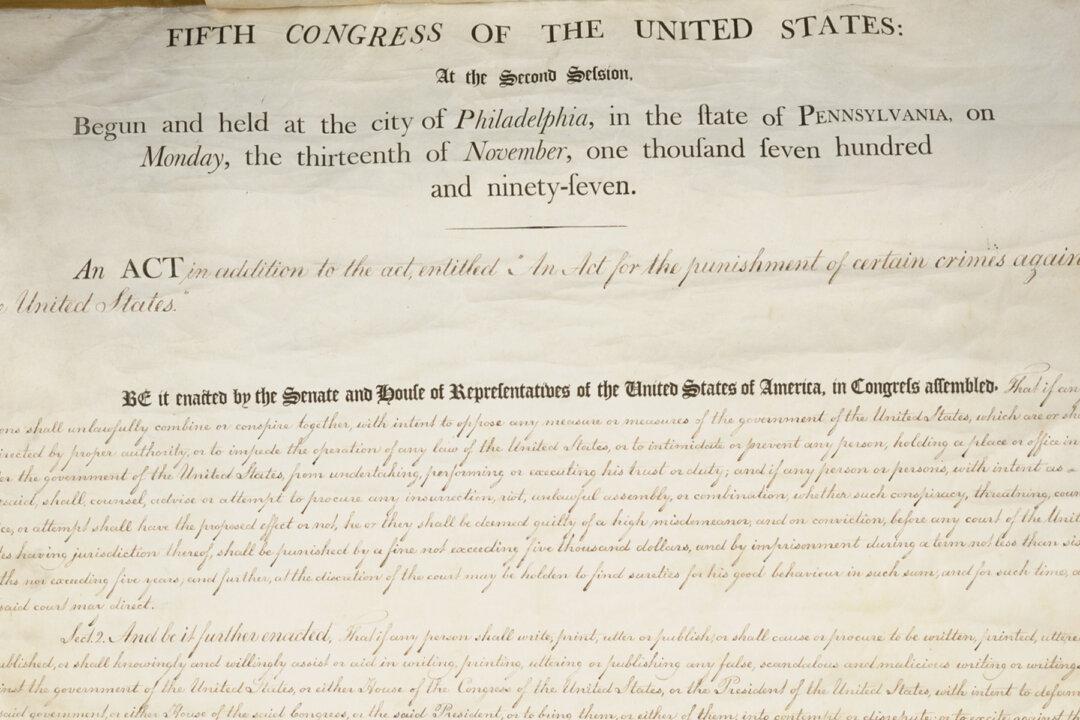 FIFTH CONGRESS OF THE UNITED STATES:
At the Second Seſſion,
Begun and held at the city of Philadelphia, in the ſtate of PENNSYLVANIA, on
Monday, the thirteenth of November, one thouſand ſeven hundred
and ninety-ſeven.
An ACT in addition to the act, entitled "An Act for the punishment of certain crimes again
United States."
BE it enacted by the Senate and Houſe of Repreſentatives of the United States of America, in Congreſs aſſembled. That if an
ons shall unlawfully combine or conspire together, with intent to oppose any measure or measures of the government of the United States, which are or sha
irected by proper authority, or to impede the operation of any law of the United States, or to intimidate or prevent any person, holding a place or office in
er the government of the United States, from undertaking, performing or executing his trust or duty; and if any person or persons, with intent as-
said, shall counsel, advise or attempt to procure any insurrection, riot, unlawful assembly, or combination, whether such conspiracy, threatning, coun
ce, or attempt shall have the proposed effect or not, he or they shall be deemed guilty of a high misdemeanor, and on conviction, before any court of the Unit
es having jurisdiction thereof, shall be punished by a fine not exceeding five thousand dollars, and by imprisonment during a term not less than six
ths nor exceeding five years; and further, at the discretion of the court may be holden to find sureties for his good behaviour in such sum, and for such time, a
said court may direct.
Sect. 2. And be it further enacted, That if any person shall write, print, utter or publish, or shall cause or procure to be written, printed, uttere
ublished, or shall knowingly and willingly assist or aid in writing, printing, uttering or publishing any false, scandalous and malicious writing or writings
inst the government of the United States, or either House of the Congress of the United States, or the President of the United States, with intent to defam
said government, or either House of the said Congress, or the said President, or to bring them, or either of them, into contempt or disrepute; or to excite against the